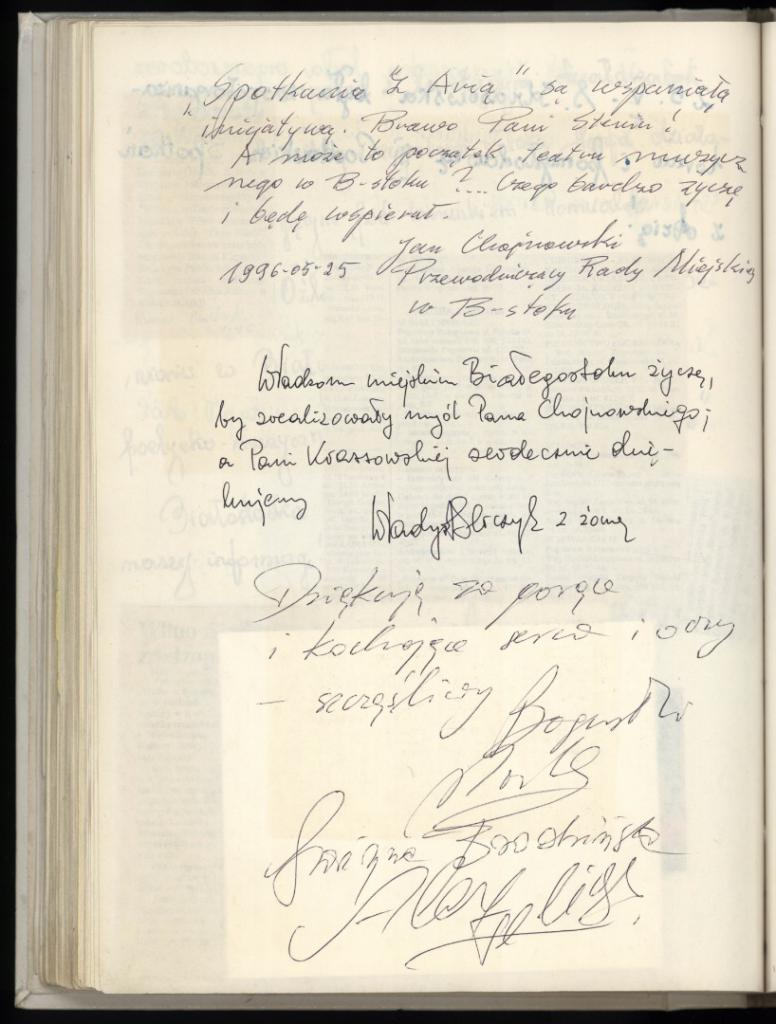 „Spotkania "Z Arią" są wspaniałą
inicjatywą. Brawo Pani Steniu!
A może to początek teatru muzycz
nego w B-stoku ?... Czego bardzo życzę
i będę wspierał
Jan Chojnowski
1996-05-25 Przewodniczący Rady Miejskiej
w B-stoku
Władzom miejskim Białegostoku życzę,
by zrealizowały myśl Pana Chojnowskiego;
a Pani Krassowskiej serdecznie dzię-
kujemy
z żoną
Dziękuję za gorące
i kochające serca i oczy
– szczęśliwy
Grażyna Brodzińska